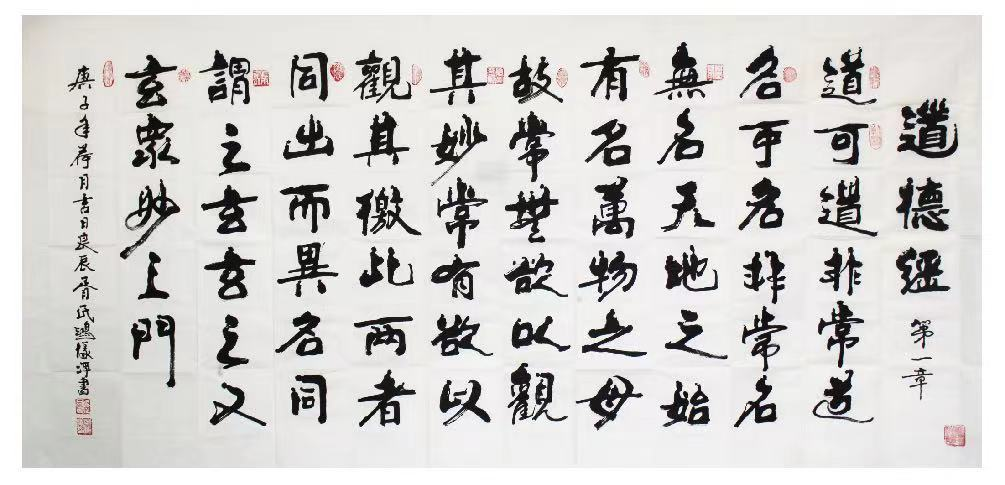 道德經 第一章
道可道非常道
名可名非常名
無名天地之始
有名萬物之母
故常無欲以觀
其妙常有欲以
觀其徼此两者
同出而異名同
謂之玄玄之又
玄衆妙之門
庚子年荷月吉日良辰胥氏鴻書